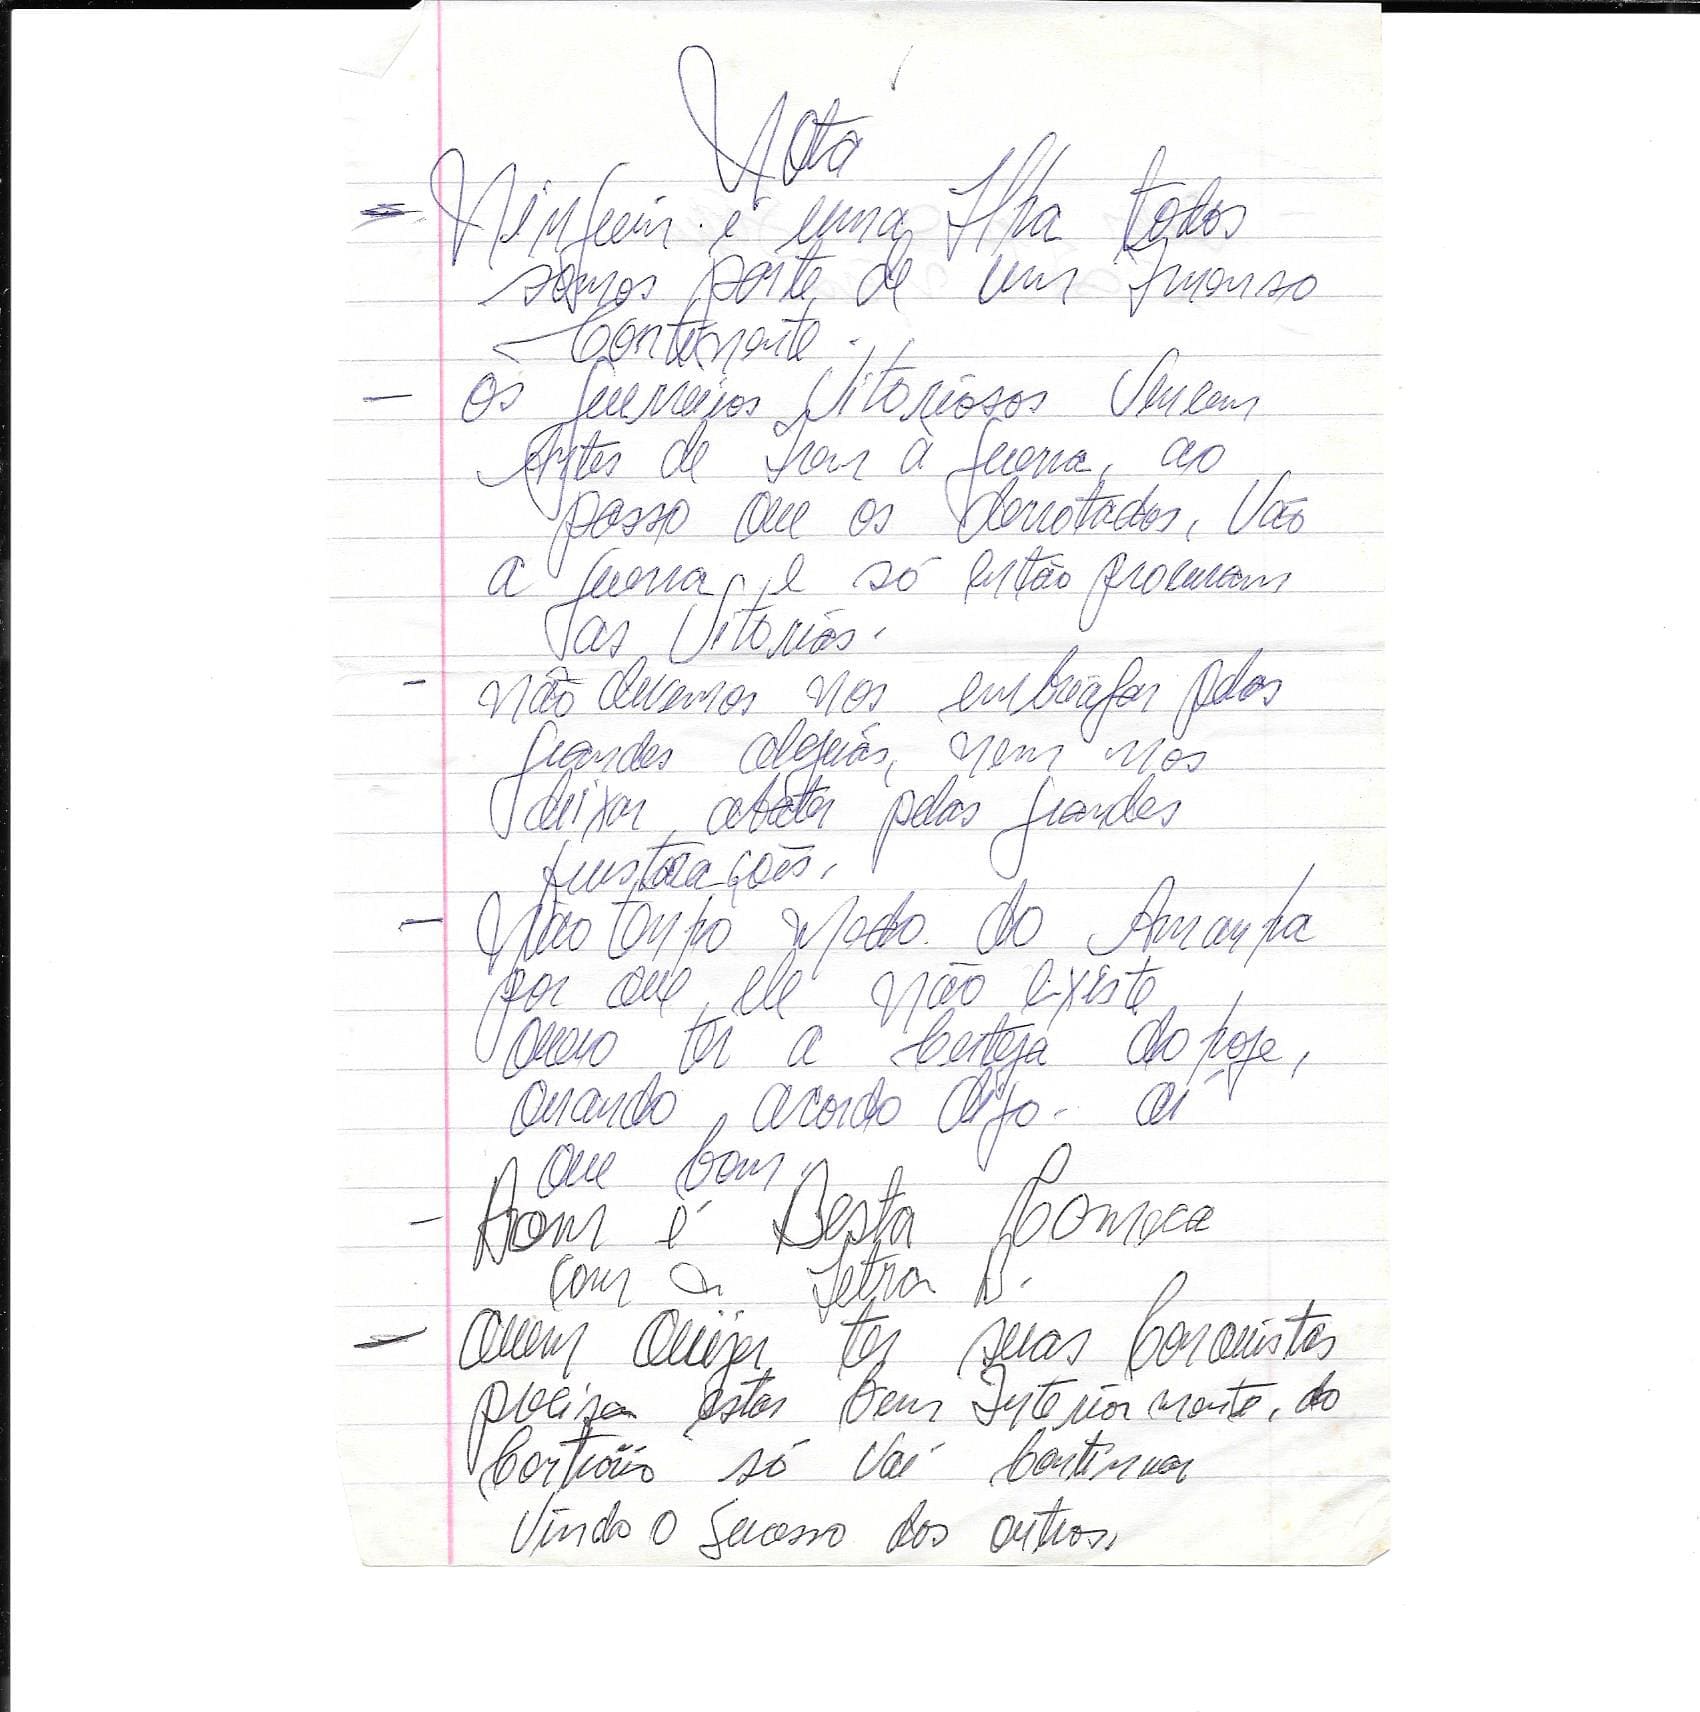 Nota
- Ninguém é uma Ilha todos
somos parte de um Imenso
Continente.
- Os guerreiros Vitoriosos Vencem
Antes de Irem à guerra, ao
passo que os derrotados, Vão
a guerra, e só então procuram
as Vitórias.
- não devemos nos embriagar pelas
grandes alegrias, nem nos
deixar, abater pelas grandes
frustrações.
- Não tenho Medo do Amanha
por que, ele não existe
quero ter a Certeza do hoje,
quando, acordo digo - ai
que bom.
- Bom é Besta Começa
com a Letra B.
- Quem Quizer ter suas Conquistas
precisa estar bem Interiormente, do
Contrário só Vai Continuar
Vindo o sucesso dos outros.